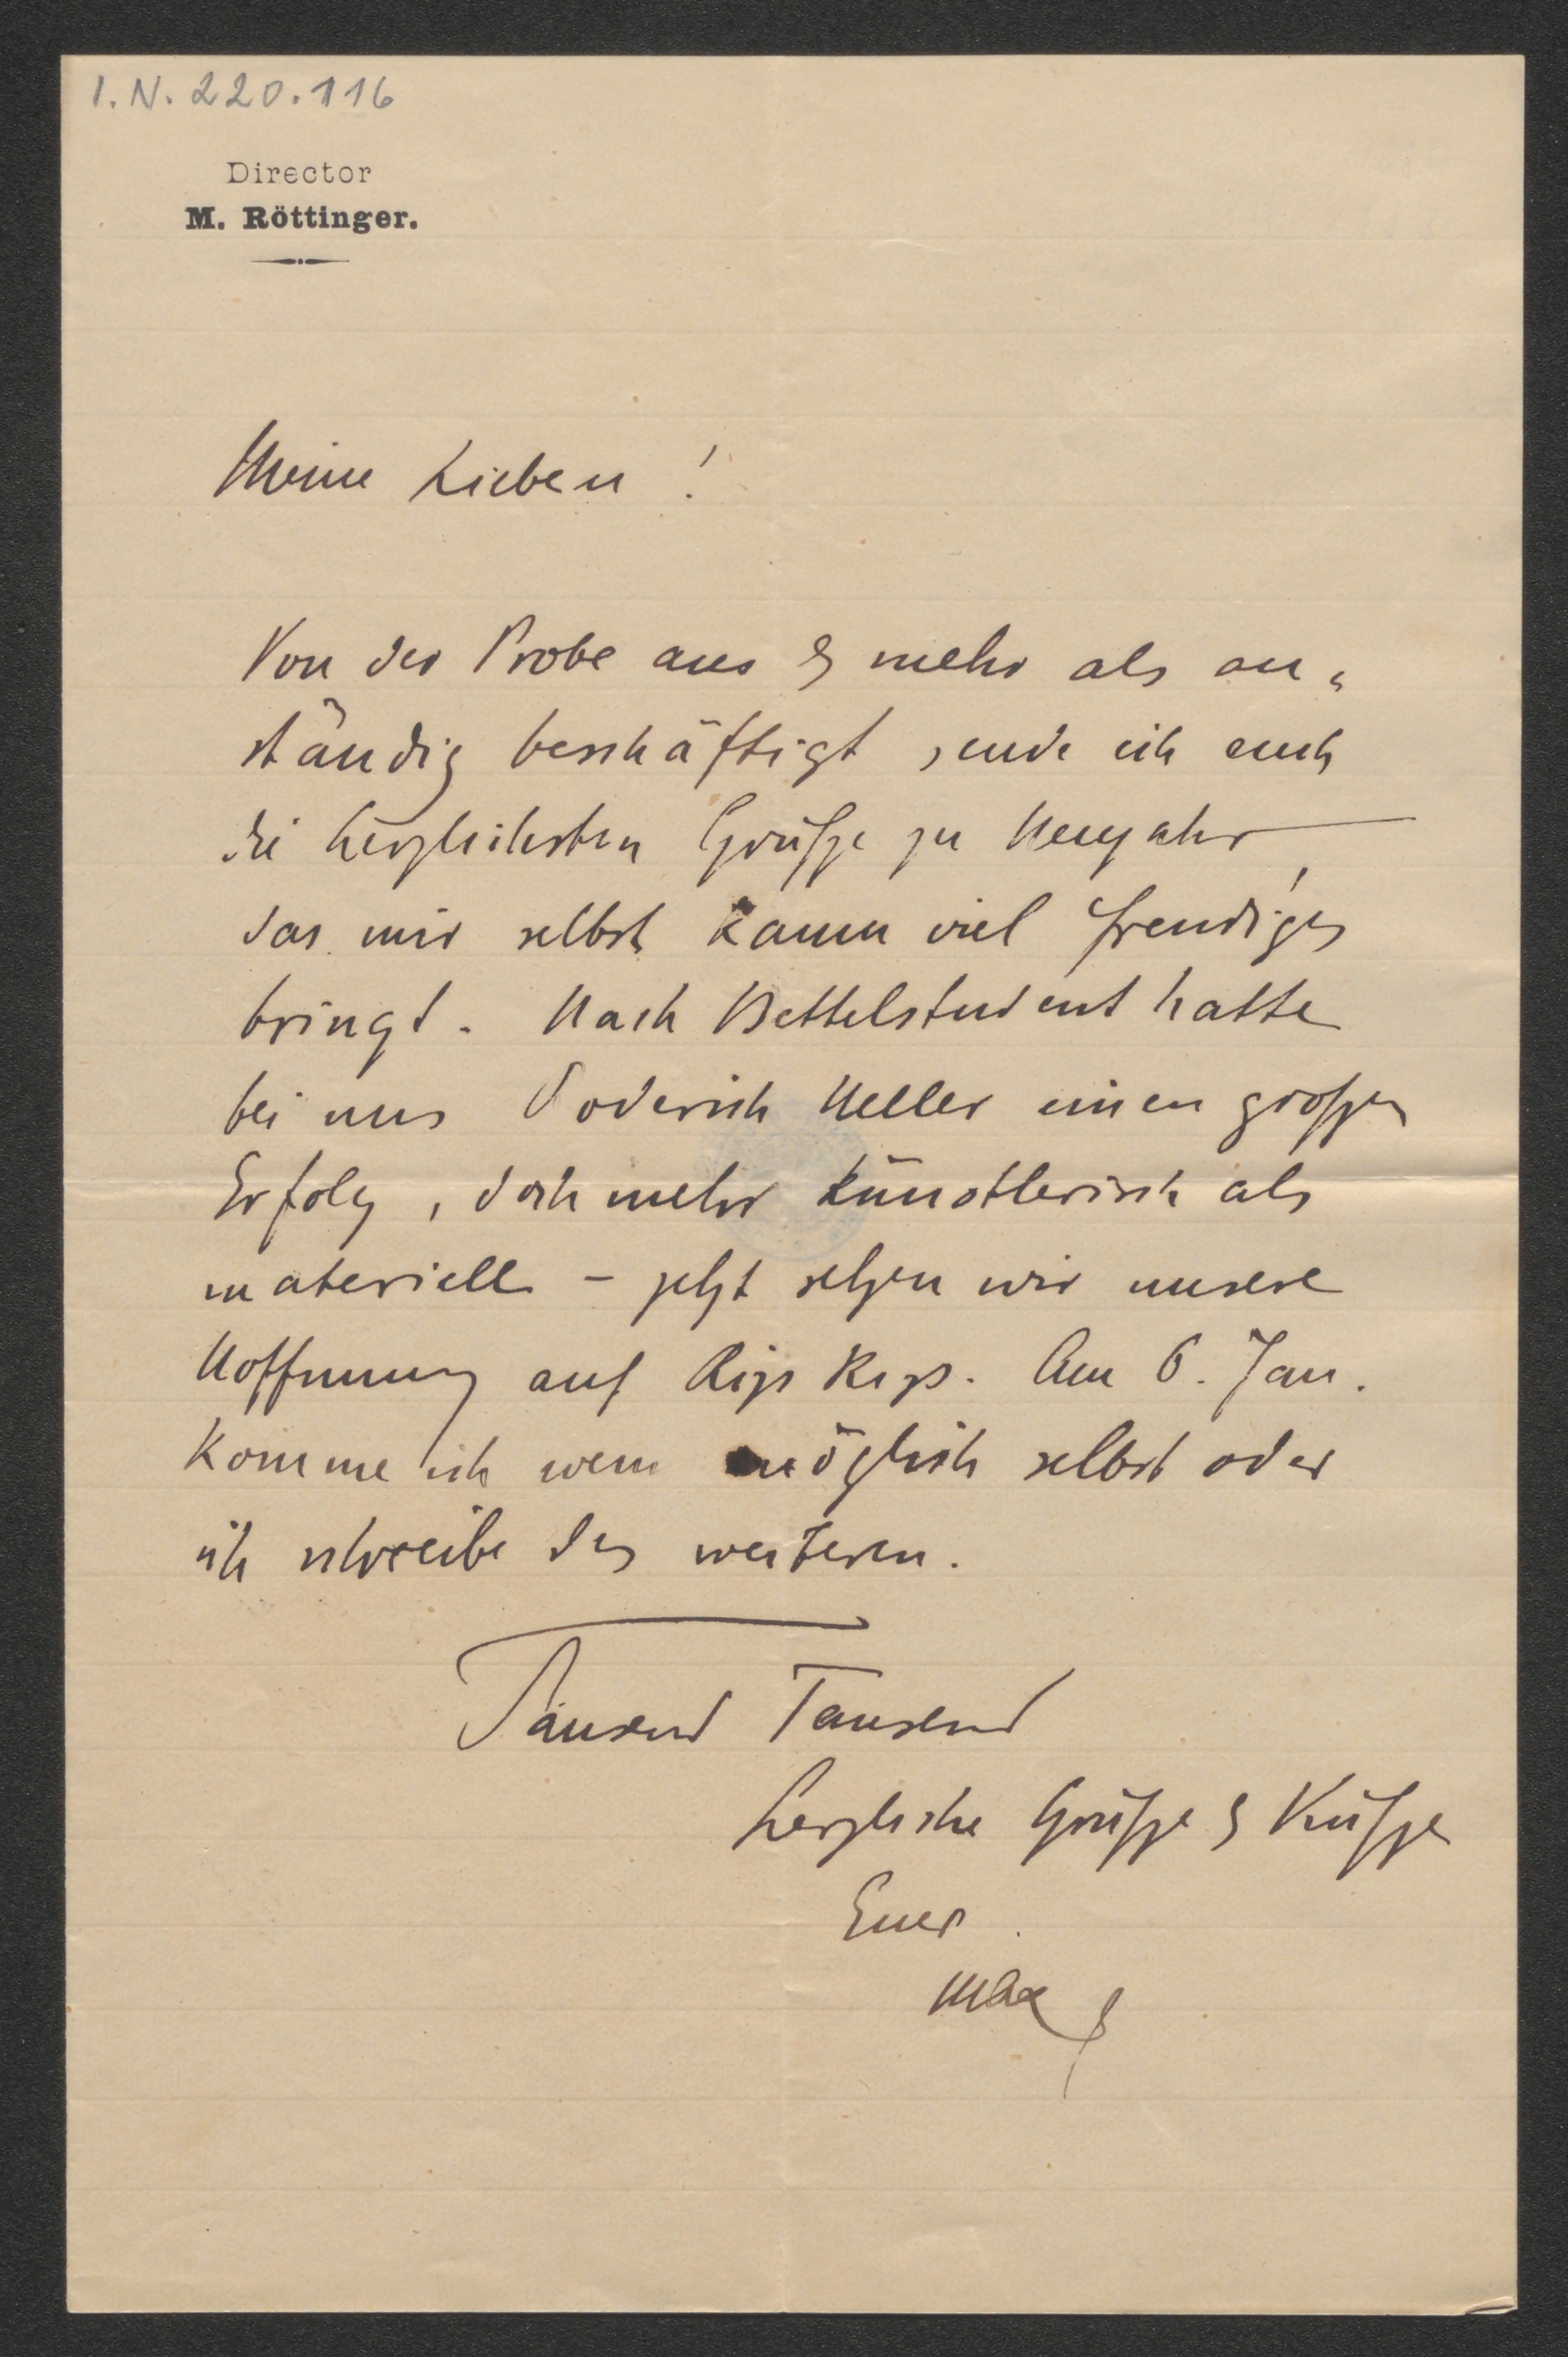 I.N. 220.116
Director
M. Röttinger.
Meine Lieben!
Von der Probe aus & mehr als an„
ständig beschäftigt, sende ich euch
die herzlichsten Grüße zu Neujahr
das mir selbst kaum viel freudiges
bringt. Nach Bettelstudent hatte
bei uns Roderich Heller einen großen
Erfolg, doch mehr künstlerisch als
materiell – jetzt setzen wir unsere
Hoffnung auf Rips Rips. Am 6. Jan.
komme ich wenn möglich selbst oder
ich schreibe des weiteren.
Tausend Tausend
herzliche Grüße & Küße
Euer
Max